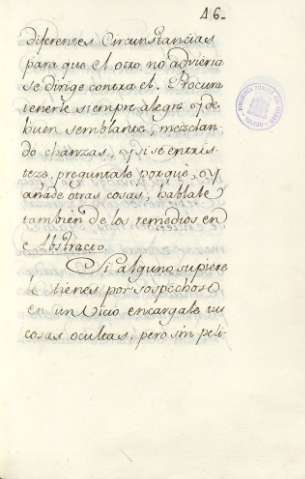 16.
diferentes Circunstancias
para que el otro no advierta
se dirige contra el. Procura
tenerle siempre alegre y de
buen semblante, mezclan-
do chanzas, y si se entris-
teze, preguntale porque, y
añade otras cosas, hablale
tambien de los remedios en
abstracto.
Si alguno supiere
le tienes por sospechoso
en un Vicio encargale tus
cosas ocultas, pero sin peli-